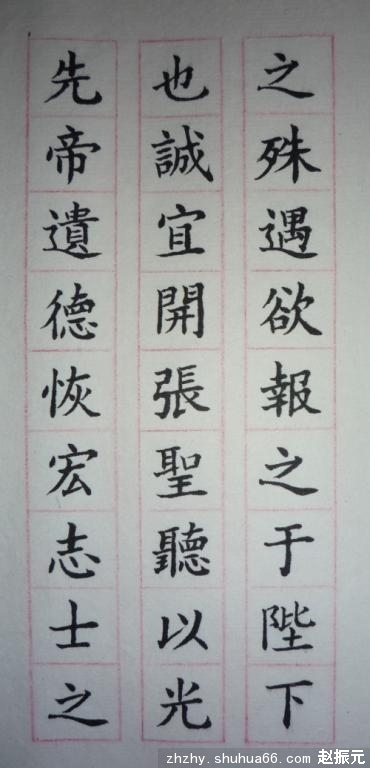 之殊遇欲報之于陛下
也誠宜開張聖聽以光
先帝遺德恢宏志士之
zhzhy.shuhua66.com 赵振元